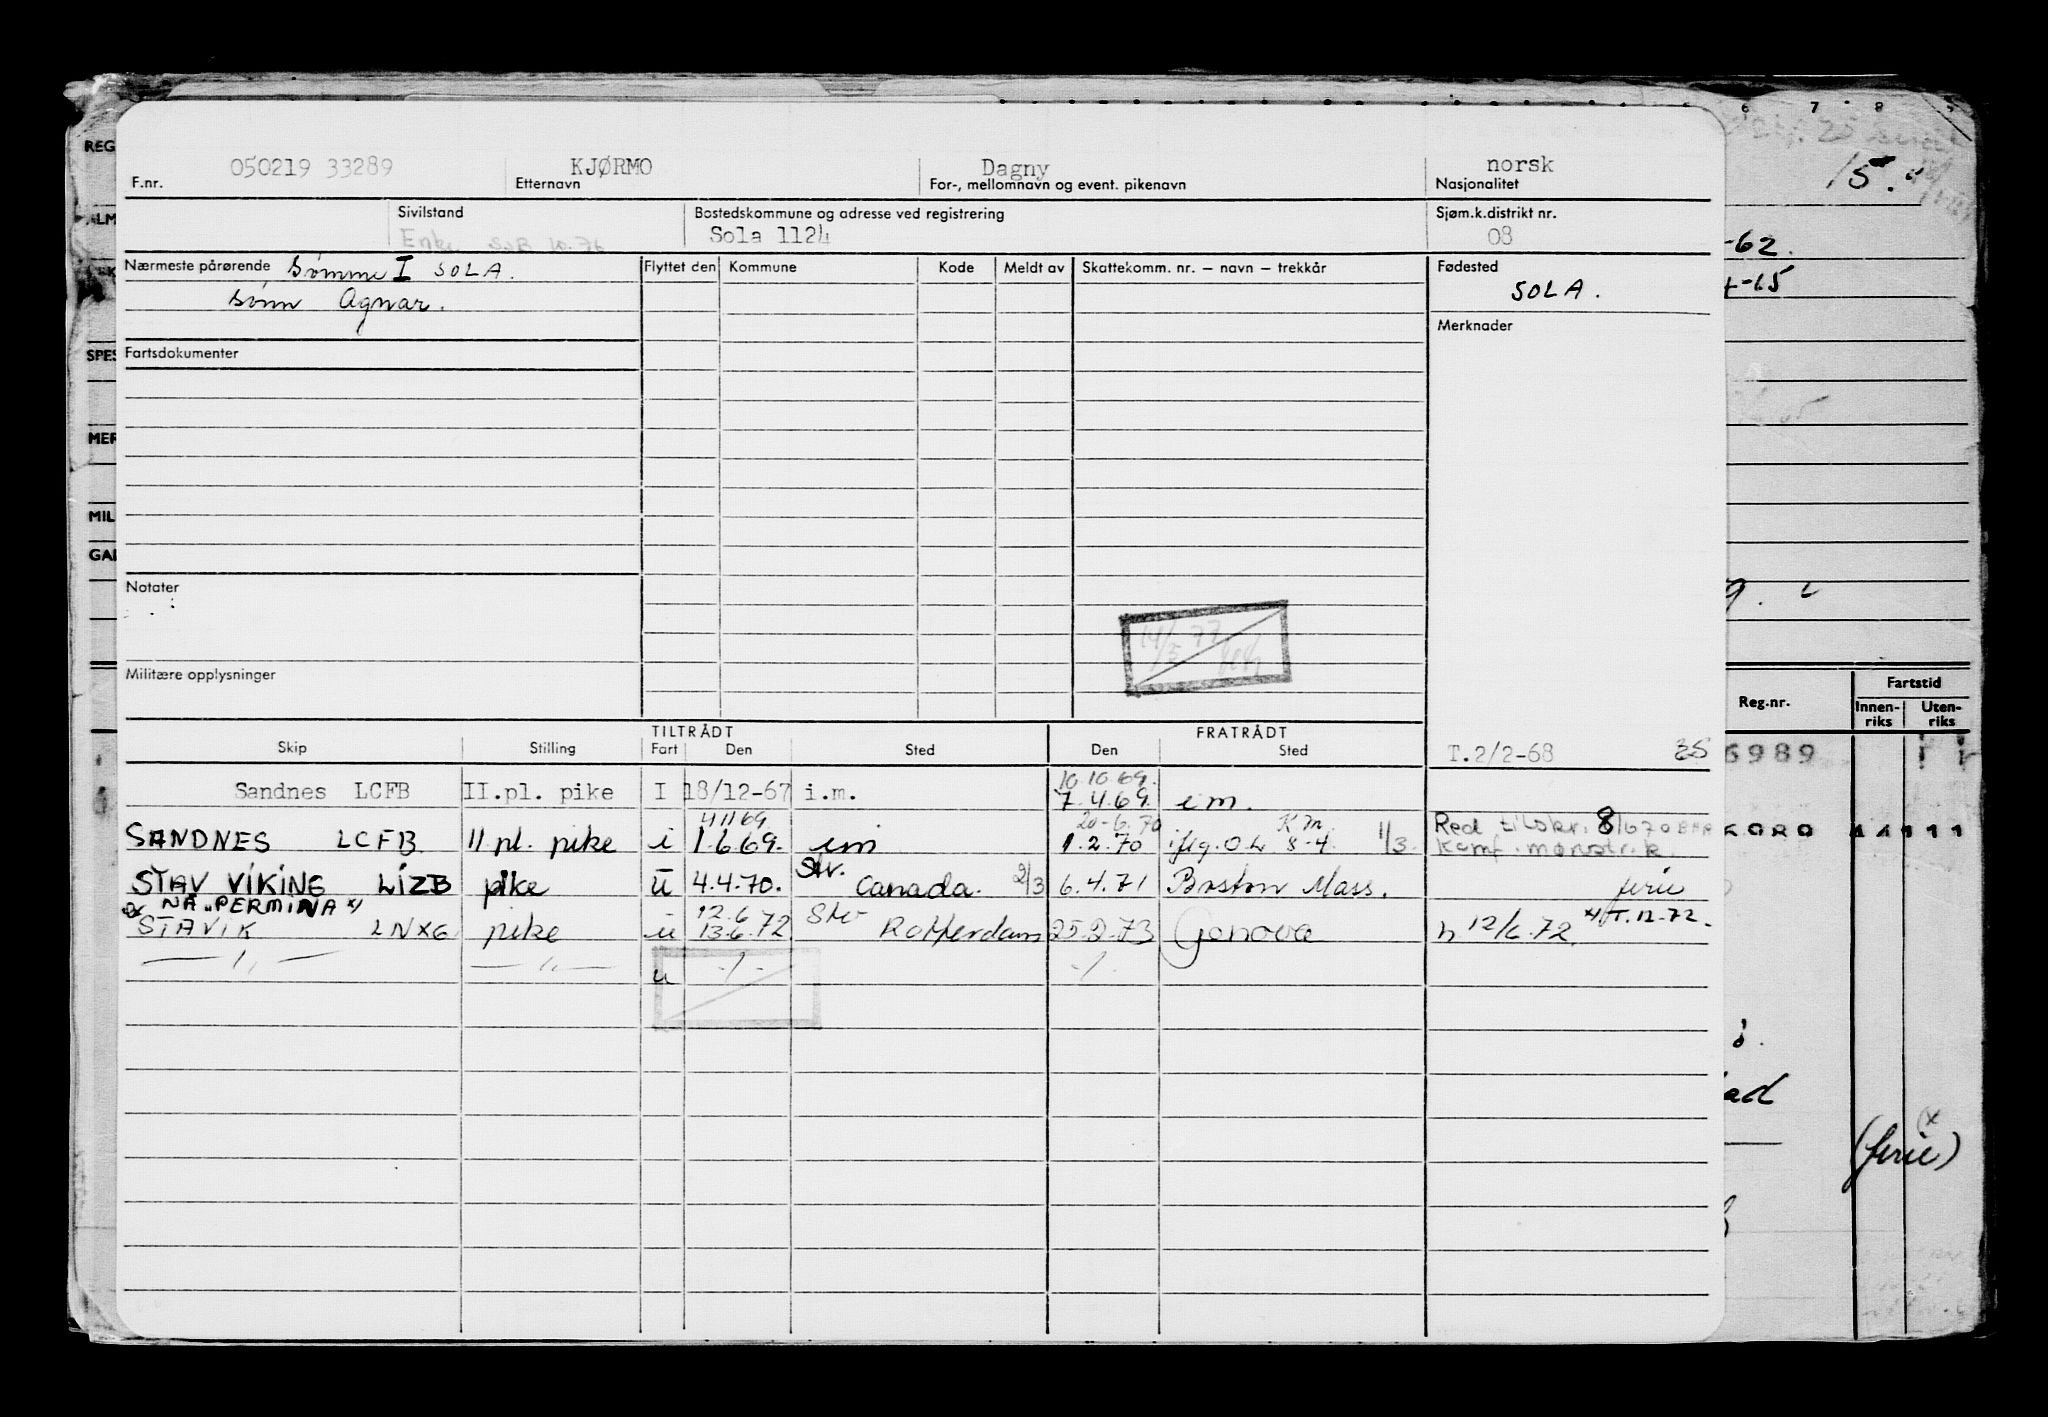 050219 33289 KJØRMO Dagny norsk
F.nr. Etternavn For-, mellomnavn og event. pikenavn Nasjonalitet
Sivilstand Bostedskommune og adresse ved registrering Sjøm.k.distrikt nr.
Enke Sola 1124 08
Nærmeste pårørende Sømme I SOLA. Flyttet den Kommune Kode Meldt av Skattekomm. nr. — navn — trekkår Fødested
Sønn Agnar. SOLA.
Merknader
Fartsdokumenter
Notater
Militære opplysninger
TILTRÅDT FRATRÅDT
Skip Stilling Fart Den Sted Den Sted T.2/2-68 35
10.10.69.
Sandnes LCFB II.pl. pike I 18/12-67 i.m. 7.4.69. im.
4/11 69 20-6.70 K.m.
SANDNES LCFB II pl. pike i 1.6.69. im 1.2.70 8-4. 1/3. Red tilskr. 8/670
Kamf.mønstr.
STAV VIKING LIZB pike u 4.4.70. Stv. Canada. 2/3 6.4.71 Boston Mass. ferie
NÅ "PERMINA" x)
12.6
STAVIK LNXG pike u 13.6.72 Stv Rotterdam 25.2.73 Genova h 12/6.72. x) T.12-72.
— " — — " — u -/- -/-
REG
SPES
MER
MIL
6 7 8
15.
-62.
Reg.nr. Fartstid
Innen-riks Uten-riks
6989
ad
(ferie)